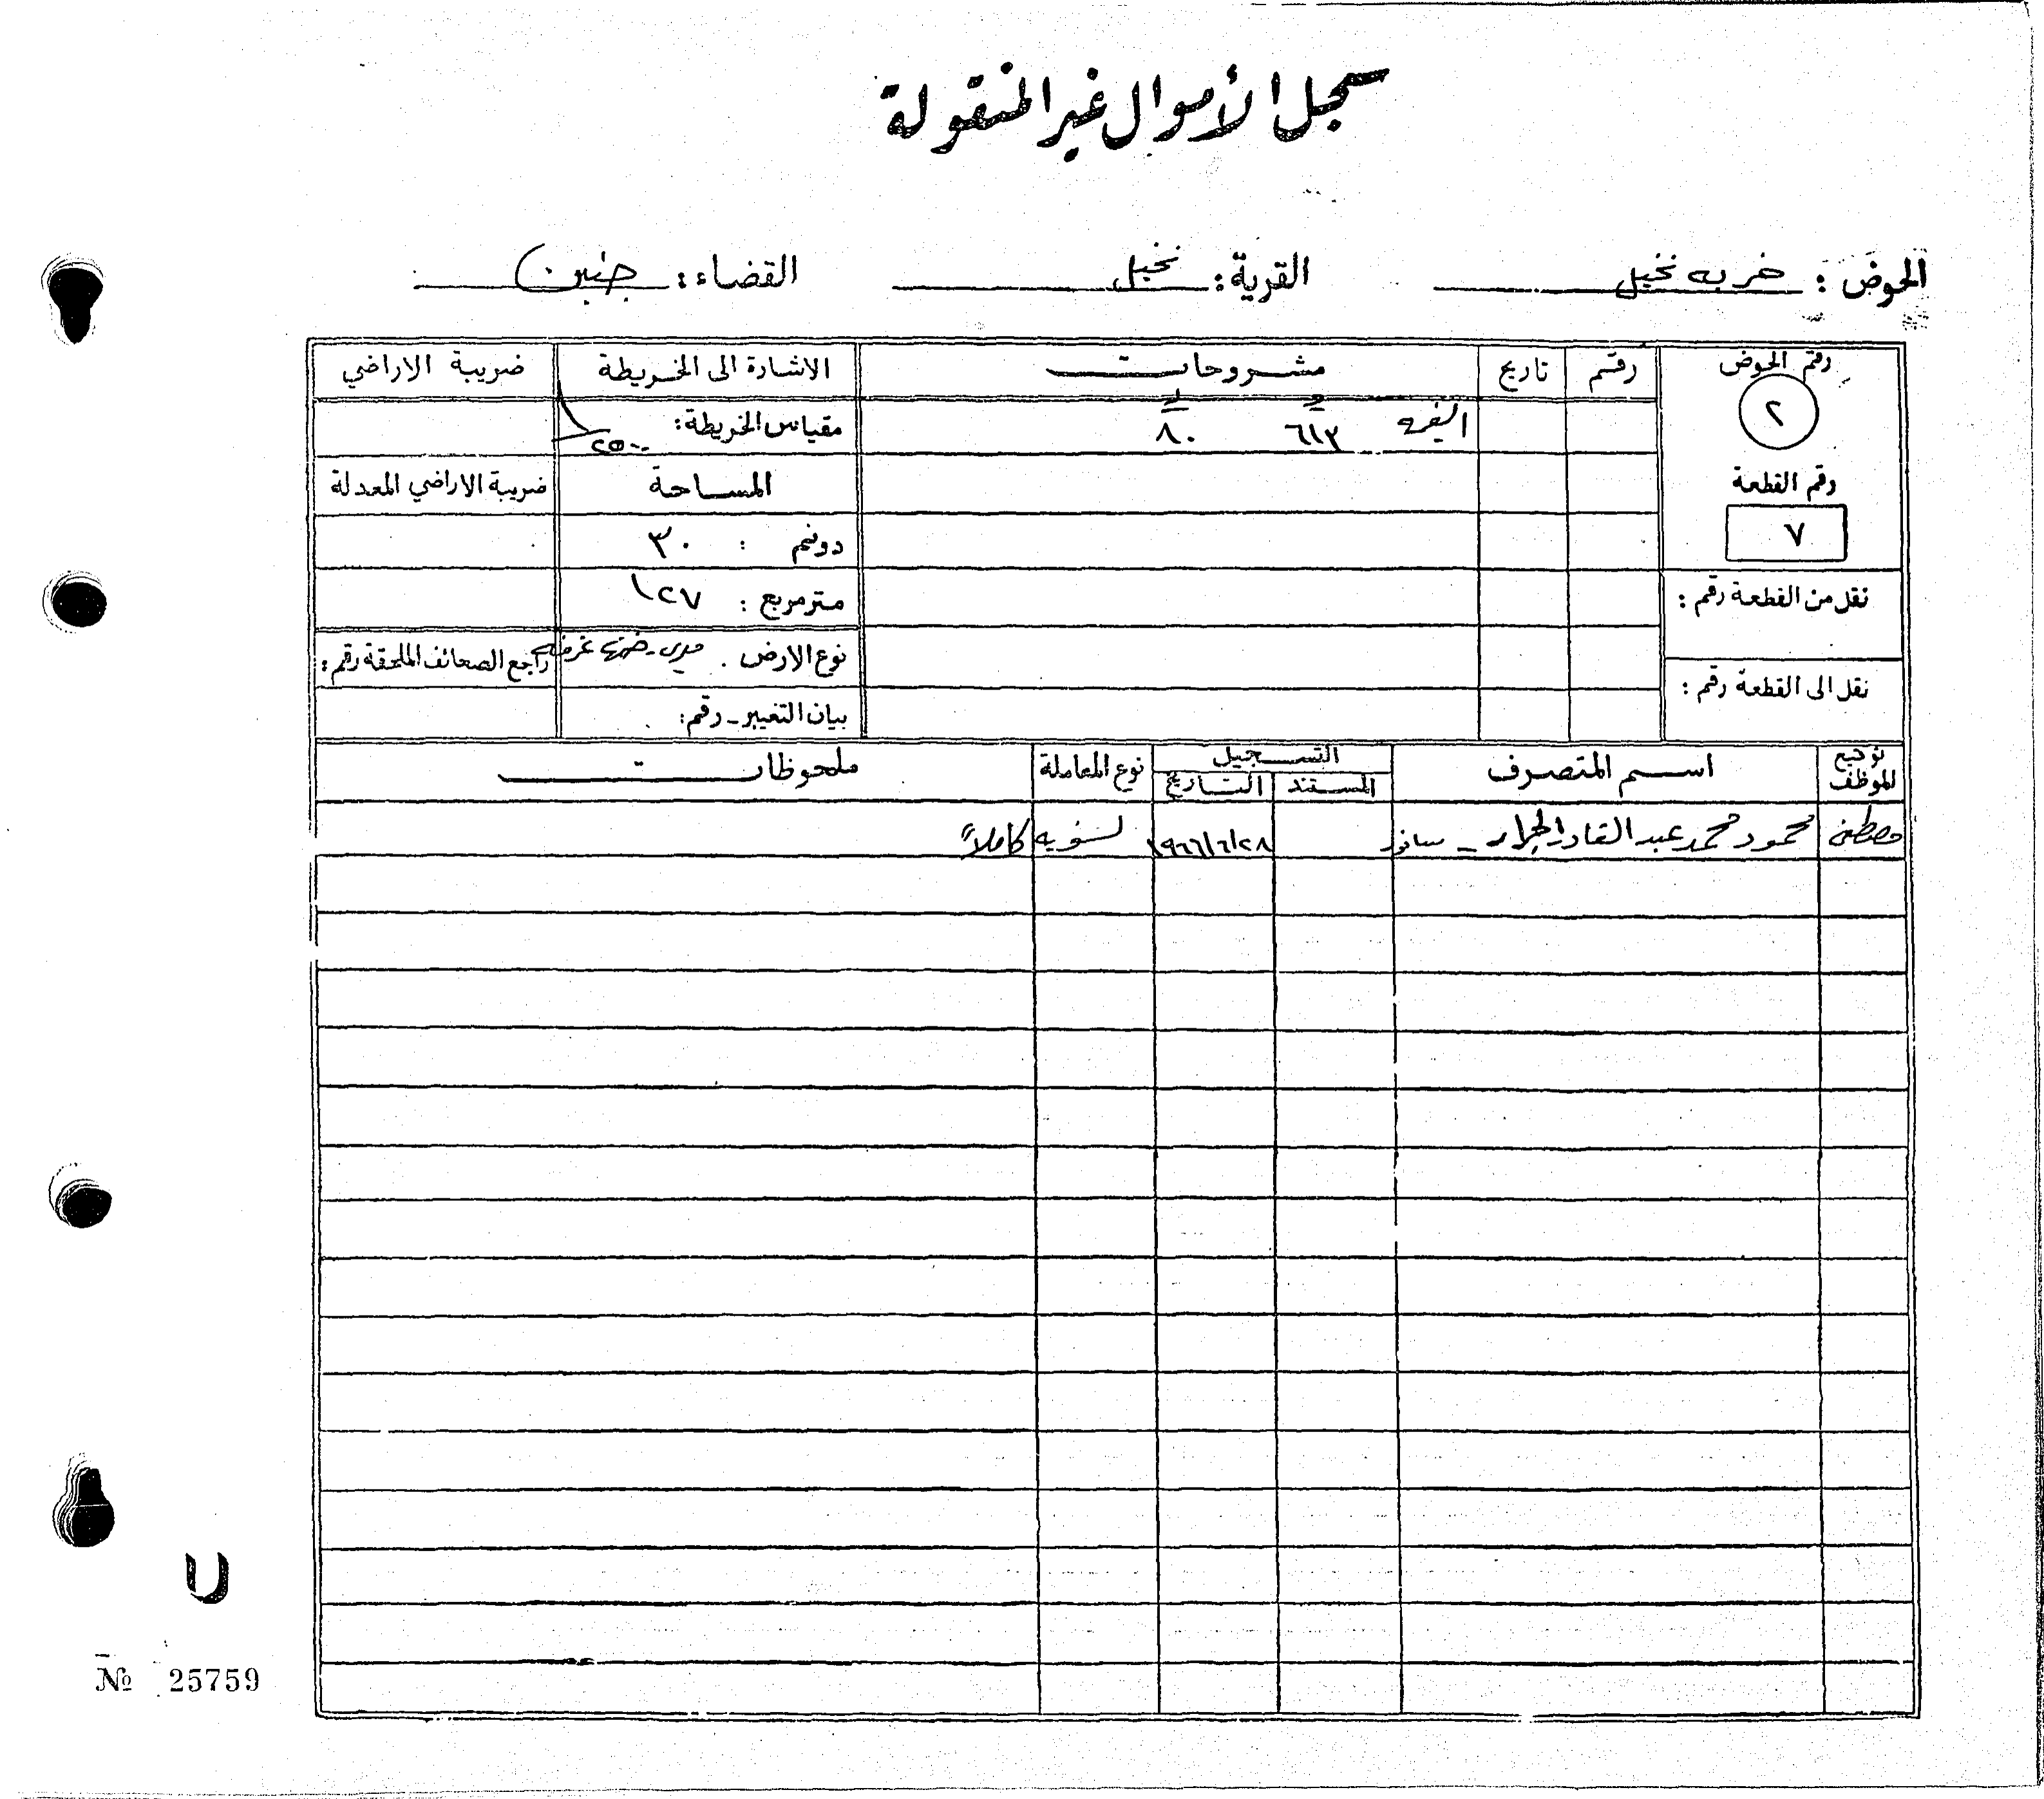 سجل الأموال غير المنقولة
الحوض : خربه نخيل القرية : نخيل القضاء : جنين
رقم الحوض رقم تاريخ مشروحات الاشارة الى الخريطة ضريبة الاراضي
٢ ٦١٣ ٨٠ مقياس الخريطة : ١/٢٥٠٠
رقم القطعة المساحة ضريبة الاراضي المعدلة
٧ دونم : ٣٠
نقل من القطعة رقم : متر مربع : ١٢٧
نوع الارض . ميري - ضمنها غرفه راجع الصحائف الملحقة رقم :
نقل الى القطعة رقم : بيان التغيير - رقم :
توقيع الموظف اسم المتصرف التسجيل نوع المعاملة ملحوظات
المستند التاريخ
مصطفى محمود محمد عبد القادر الجرار - ١٩٦٦/٦/٢٨ تسويه كاملاً
№ 25759